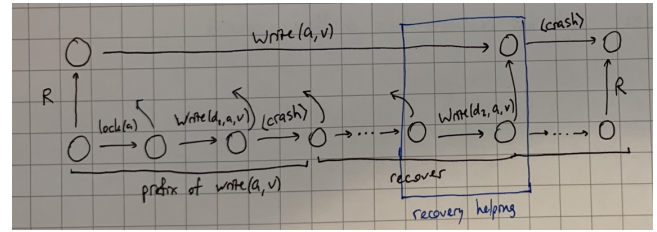 write(a,v)
(crash)
R
lock(a)
write(d₁,a,v)
(crash)
write(d₂,a,v)
R
prefix of write(a,v)
recover
recovery helping